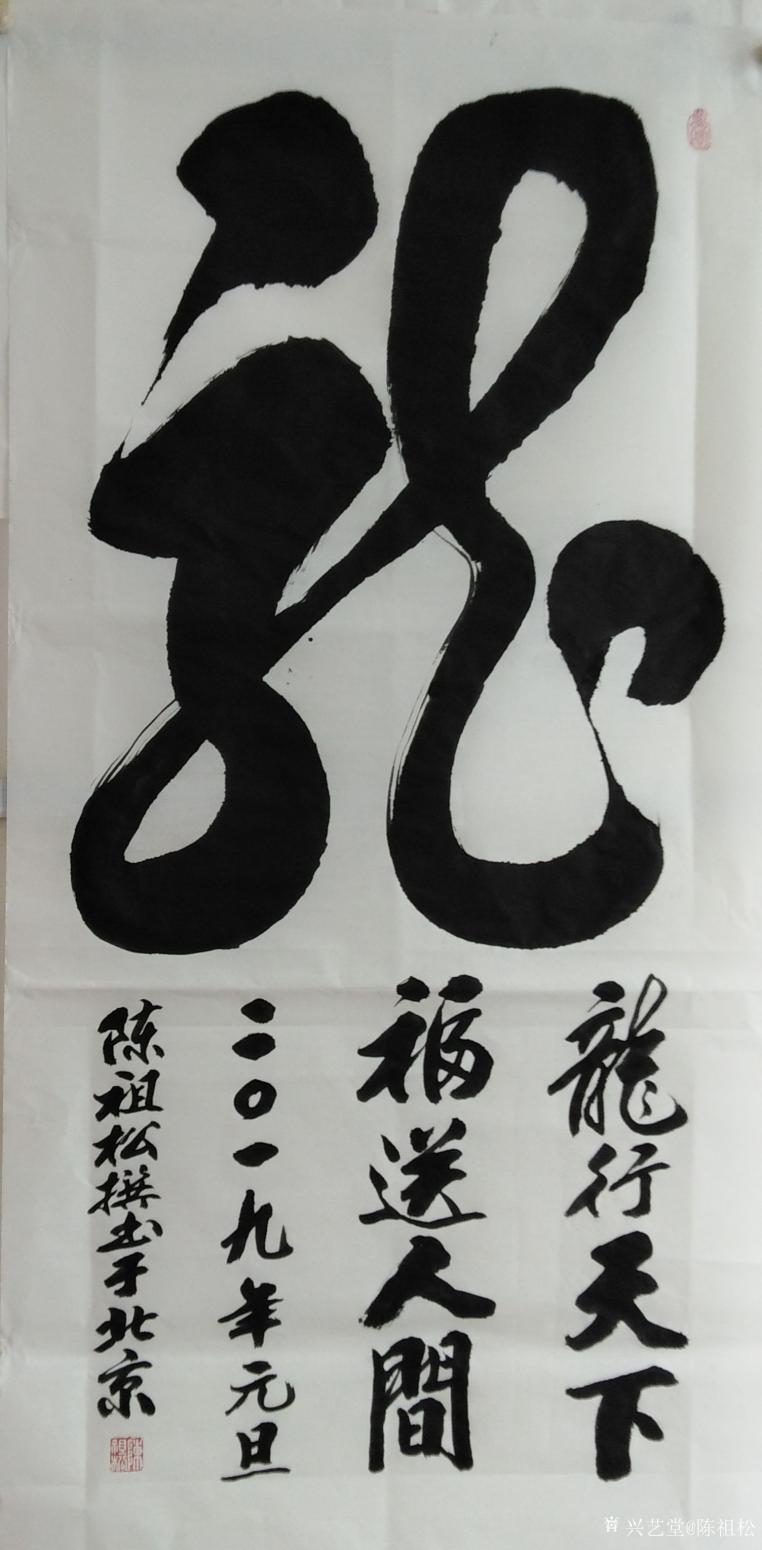 龍
龍行天下
福送人間
二〇一九年元旦
陈祖松撰书于北京
兴艺堂@陈祖松